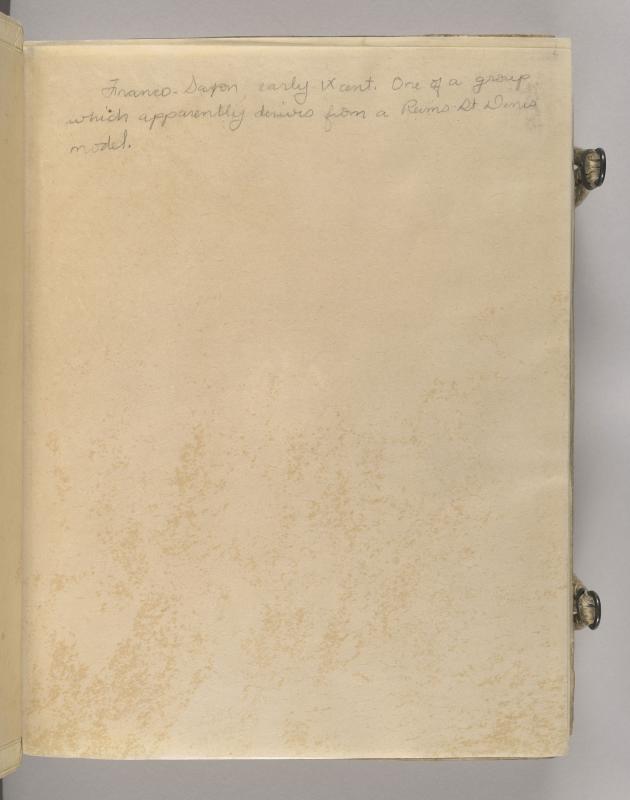 Franco-Saxon, early IX cent. One of a group
which apparently derives from a Reims-St Denis
model.